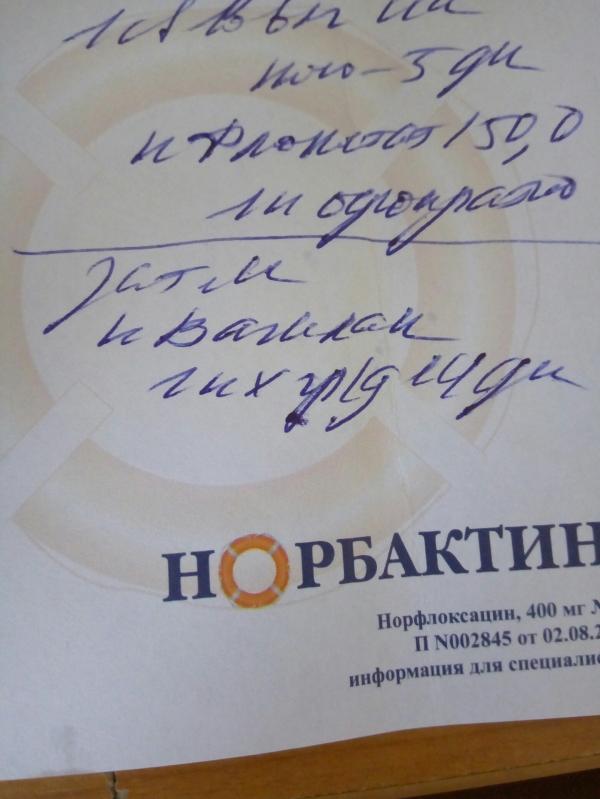 1 св в вл на
ночь – 5 дн
н Флюкостат 150,0
1 к однократно
затем
н Вагилак
1 к х 2 р/д 14 дн
НОРБАКТИН
Норфлоксацин, 400 мг №
П N002845 от 02.08.2
информация для специалис